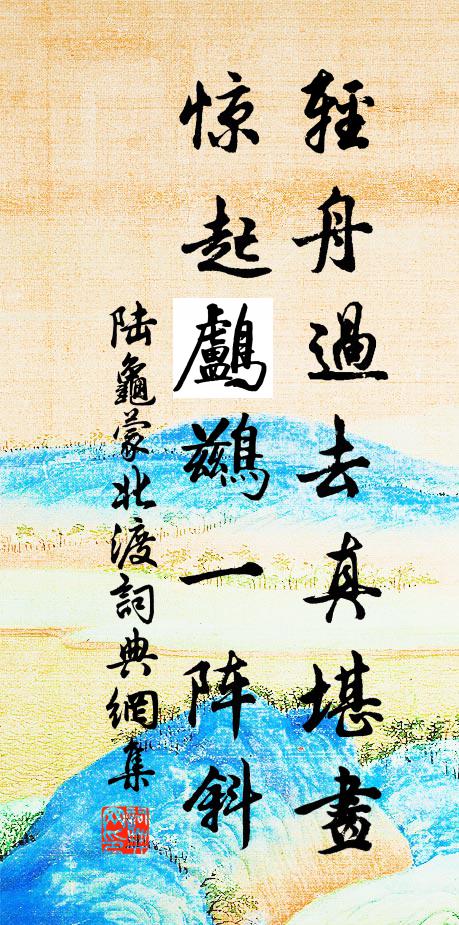 輕舟過去真堪畫
惊起鸕鷀一阵斜
陆龜蒙北渡詞典網集